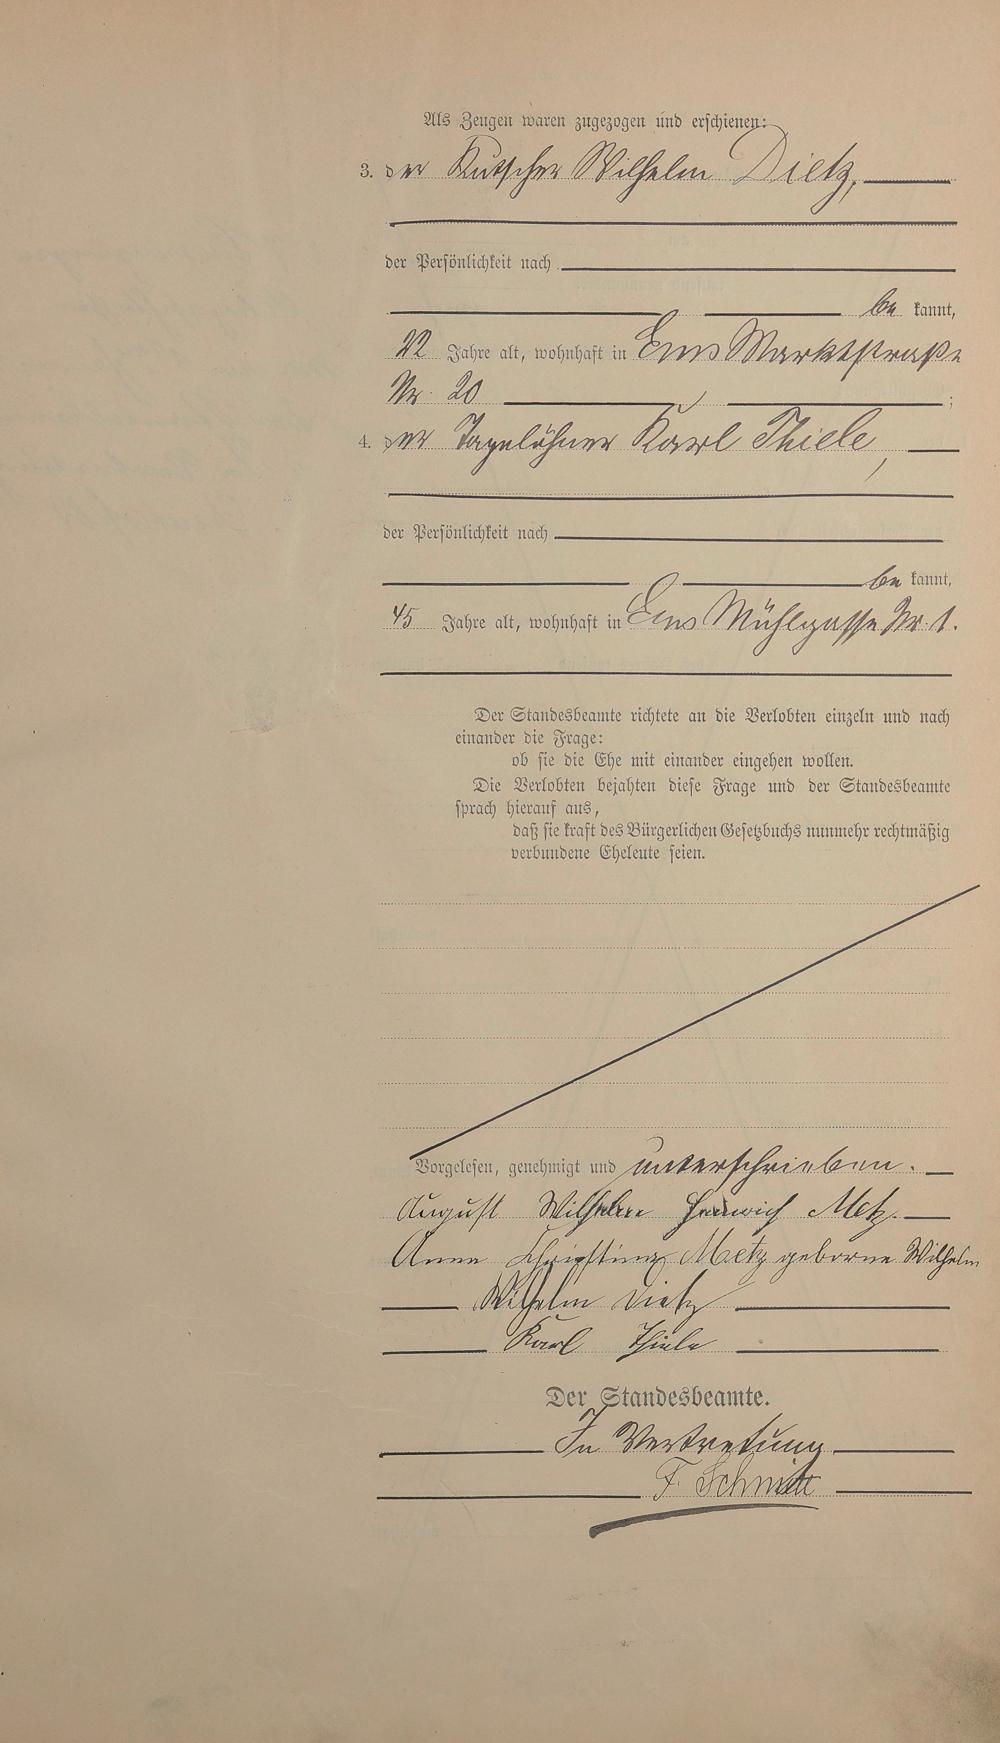 Als Zeugen waren zugezogen und erschienen:
3. der Kutscher Wilhelm Dietz,
der Persönlichkeit nach
be kannt,
22 Jahre alt, wohnhaft in Ems Marktstraße
Nr. 20 ;
4. der Tagelöhner Karl Thiele,
der Persönlichkeit nach
be kannt,
45 Jahre alt, wohnhaft in Ems Mühlgasse Nr. 1.
Der Standesbeamte richtete an die Verlobten einzeln und nach
einander die Frage:
ob sie die Ehe mit einander eingehen wollen.
Die Verlobten bejahten diese Frage und der Standesbeamte
sprach hierauf aus,
daß sie kraft des Bürgerlichen Gesetzbuchs nunmehr rechtmäßig
verbundene Eheleute seien.
Vorgelesen, genehmigt und unterschrieben.
August Wilhelm Heinrich Metz.
Anna Christina Metz geborne Wilhelm
Wilhelm Dietz
Karl Thiele
Der Standesbeamte.
In Vertretung
F. Schmitt